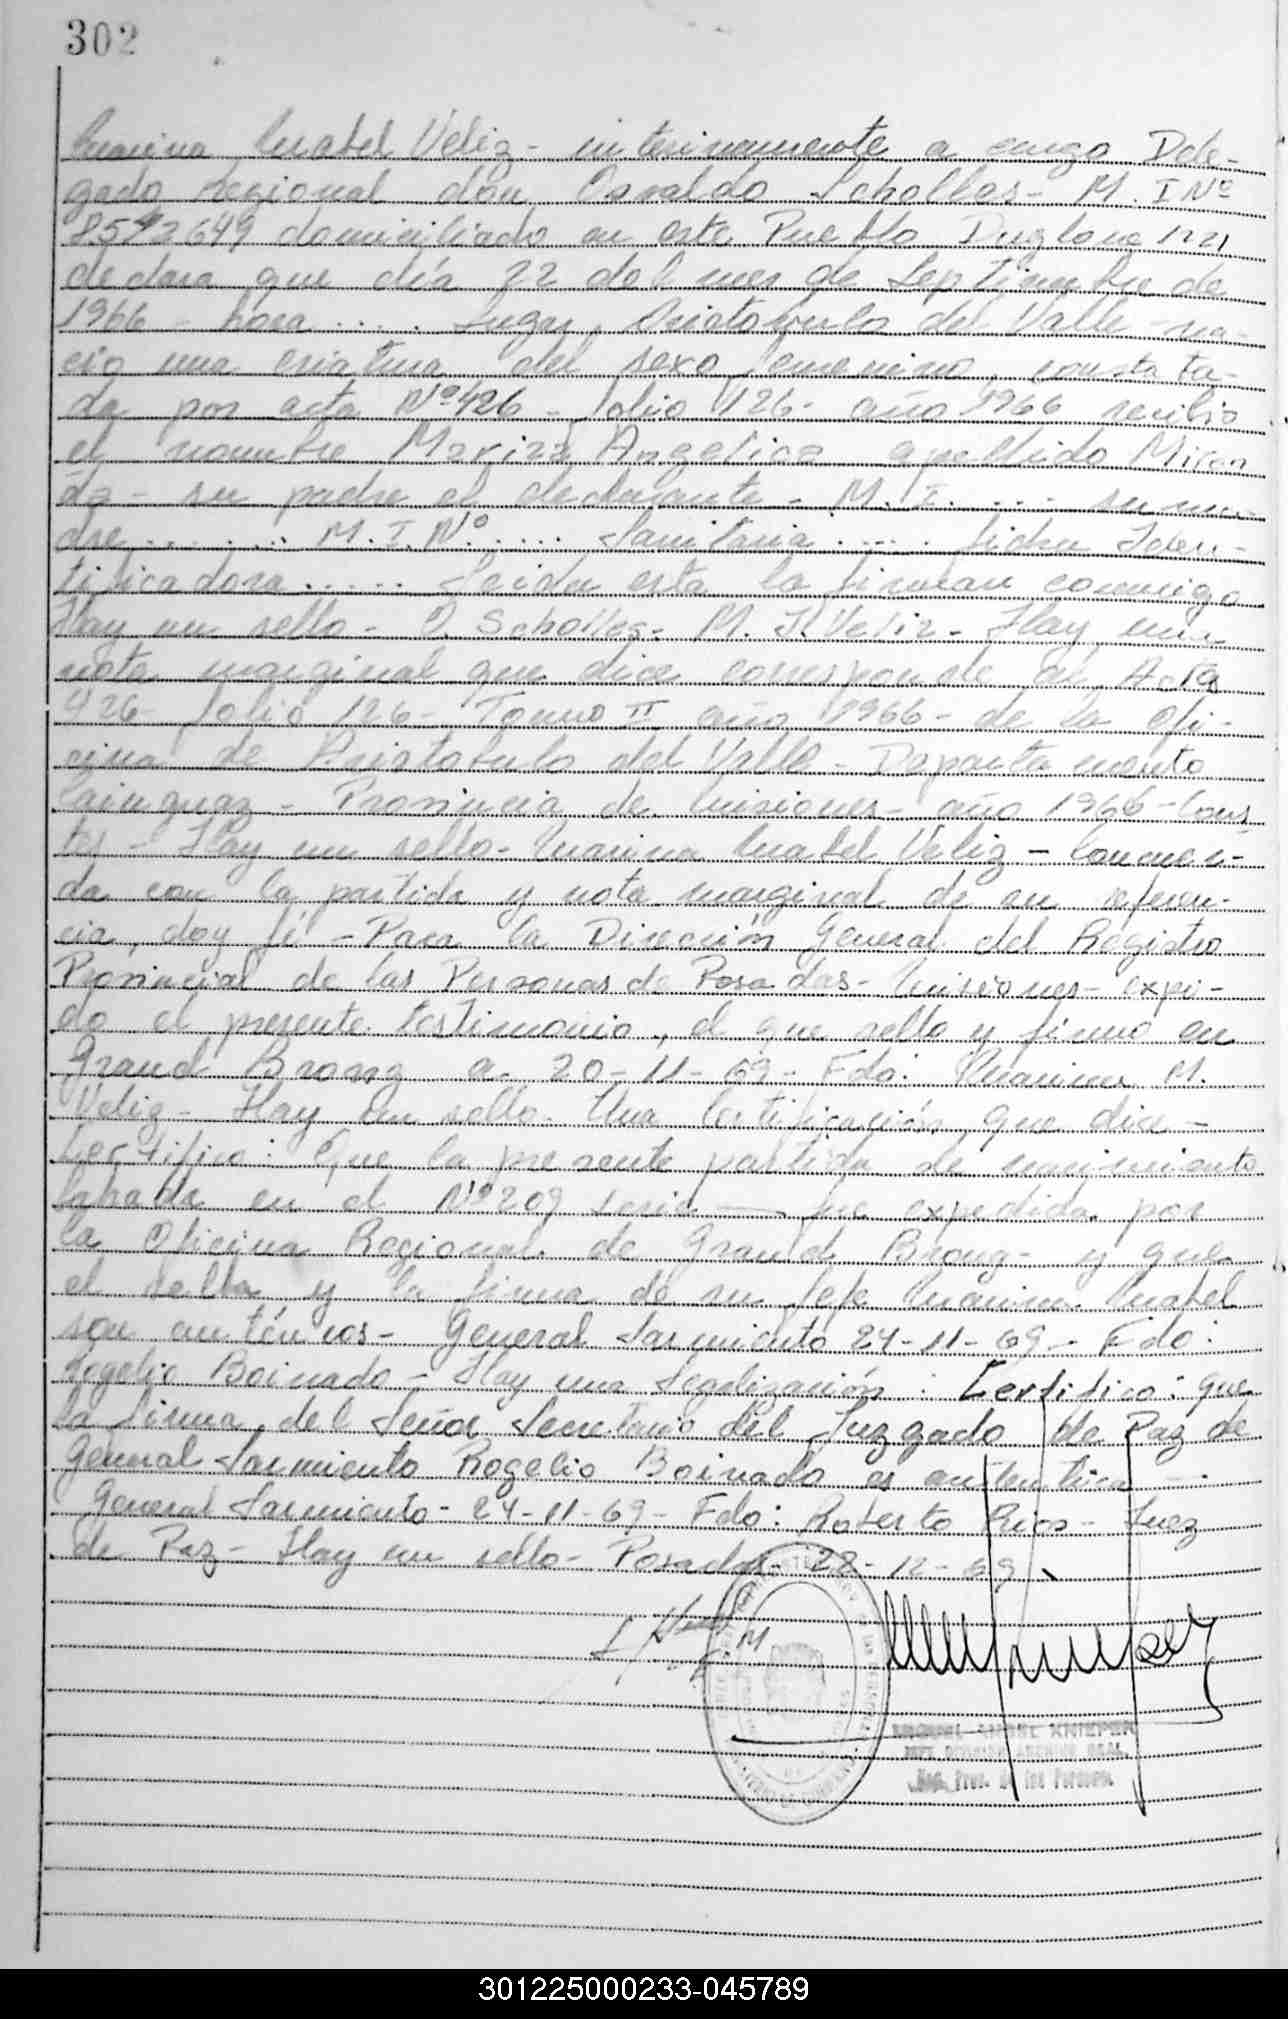 302
Marina Mabel Veliz - interinamente a cargo Dele-
gado Regional don Osvaldo Scholles - M. I Nº
8542649 domiciliado en este Pueblo 1221
declara que día 22 del mes de Septiembre de
1966 - hora .... lugar, Aristobulo del Valle - na-
cio una criatura del sexo femenino, constata-
da por acta Nº 426 - folio 126 - año 1966 recibio
el nombre Mariza Angelica apellido Miran
da - su padre el declarante - M. I. .... su ma-
dre ....... M. I. Nº ..... Sanitaria ..... ficha Iden-
tificadora ..... Leida esta la firman conmigo
Hay un sello - O. Scholles - M. Veliz - Hay una
nota marginal que dice corresponde al Acta
426 - folio 126 - Tomo II año 1966 - de la ofi-
cina de Aristobulo del Valle - Departamento
Cainguaz - Provincia de Misiones - año 1966 - Cons
te - Hay un sello - Marina Mabel Veliz - Concuer-
da con la partida y nota marginal de su referen-
cia, doy fé - Para la Dirección General del Registro
Provincial de las Personas de Posadas - Misiones - expi-
do el presente testimonio, el que sello y firmo en
Grand Bourg a 20-11-69 - Fdo: Marina M.
Veliz - Hay un sello - Una Certificación que dice -
Certifico: Que la presente partida de nacimiento
labrada en el Nº 209 serie — fue expedida por
la Oficina Regional de Grand Bourg - y que
el sello y la firma de su Jefe Marina Mabel
son autenticos - General Sarmiento 24-11-69 - Fdo:
Rogelio Boinado - Hay una Legalización: Certifico: que
la firma del Señor Secretario del Juzgado de Paz de
General Sarmiento Rogelio Boinado es autentica -
General Sarmiento - 24-11-69 - Fdo: Roberto Rios - Juez
de Paz - Hay un sello - Posadas - 28-12-69
MIGUEL ANGEL KNIEPER
JEFE DIVISION ARCHIVO GRAL.
Reg. Prov. de las Personas
301225000233-045789